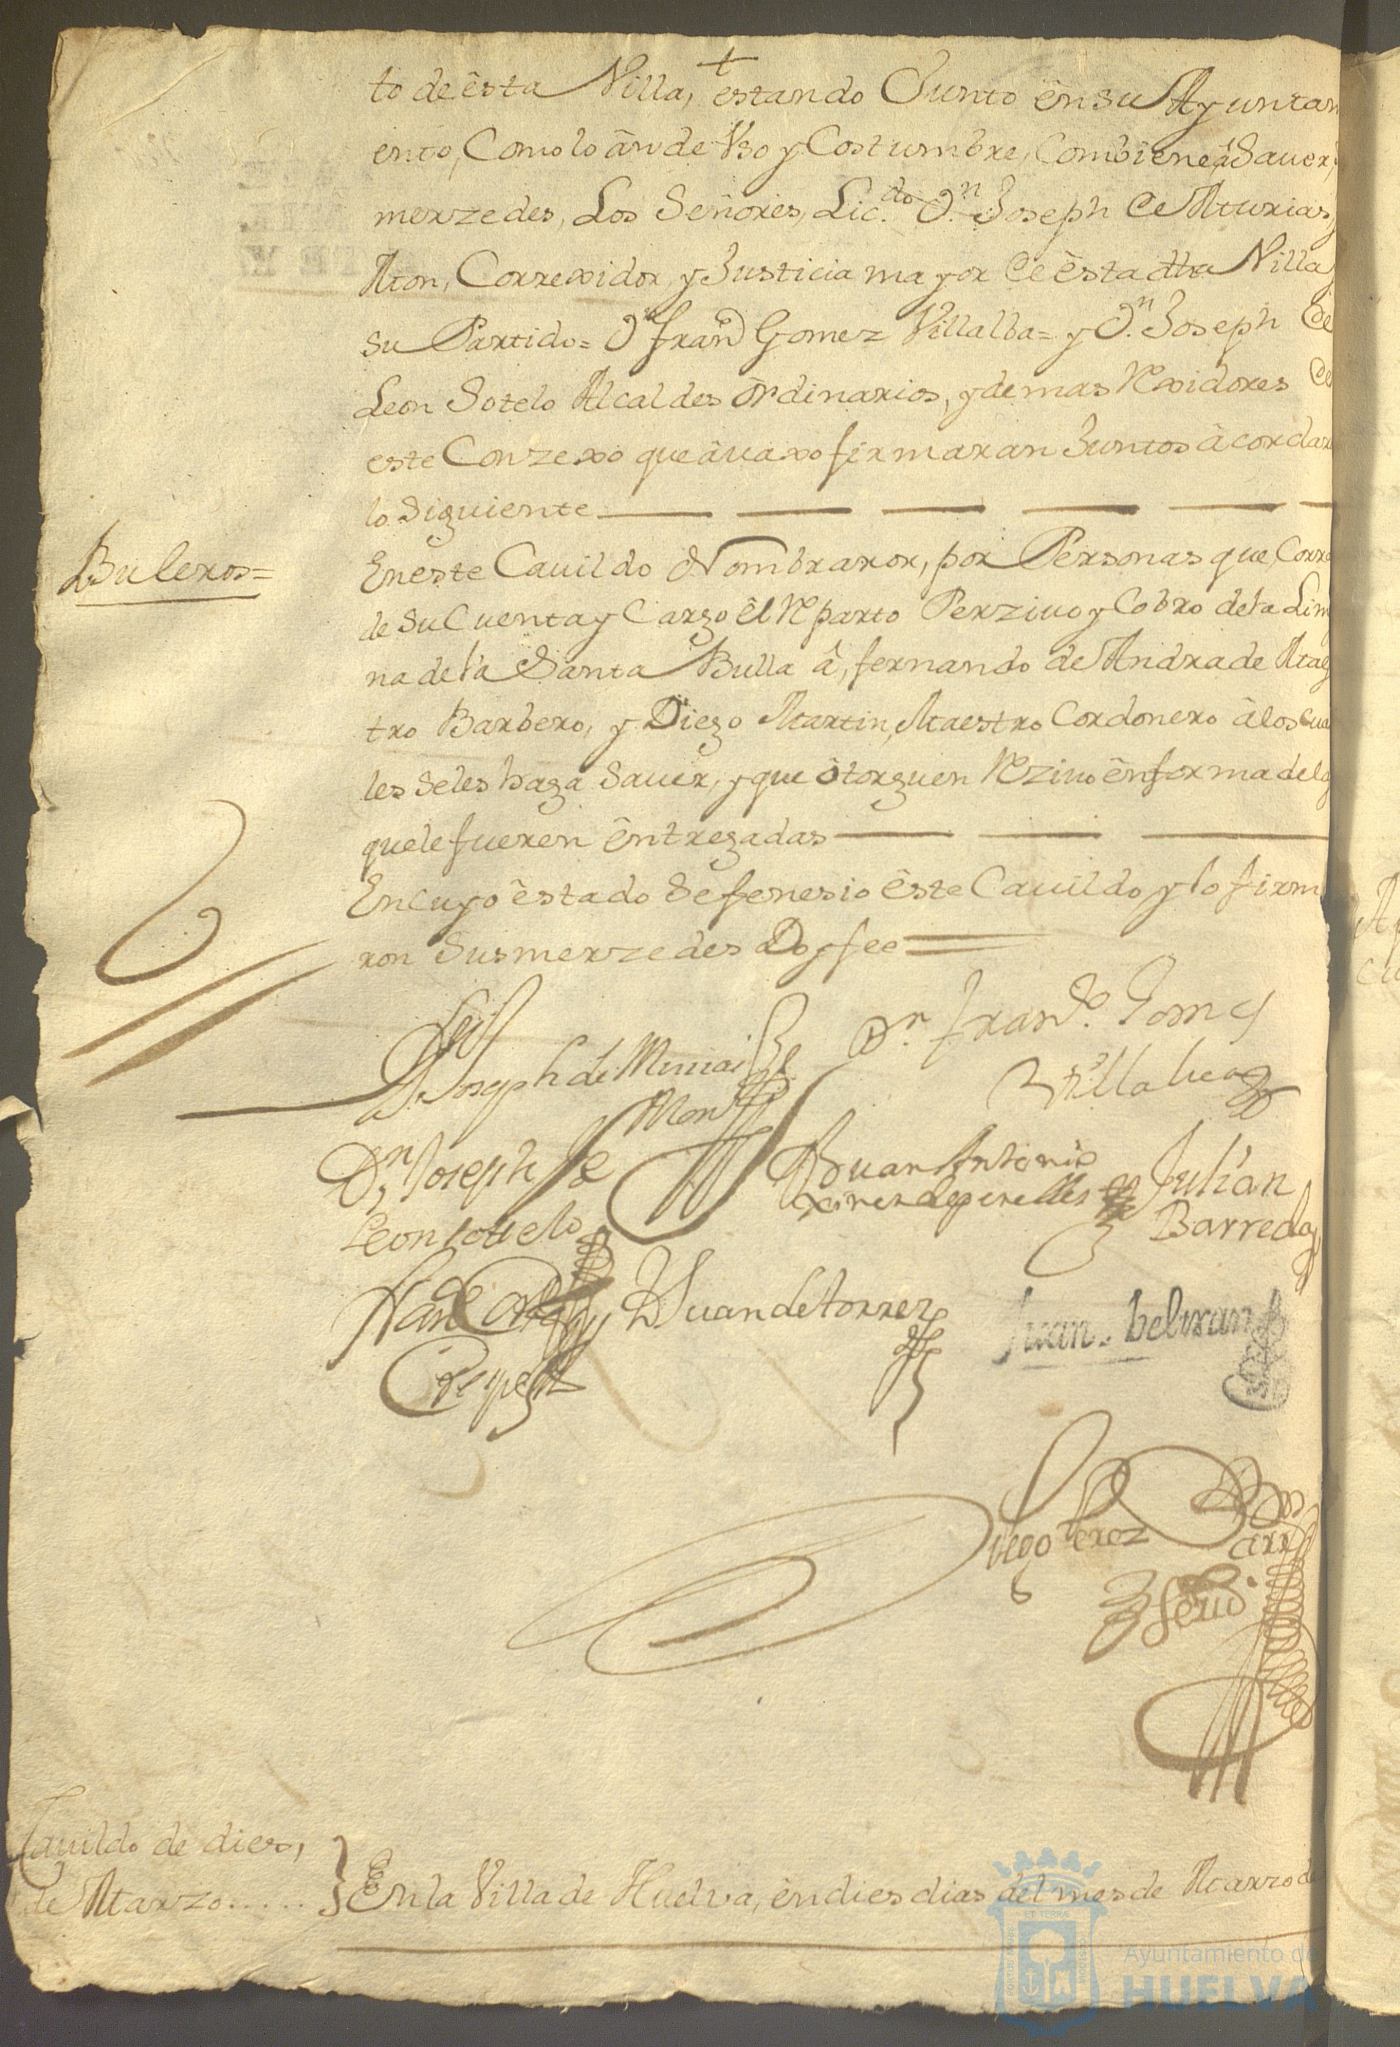 to de êsta Villa, estando Junto ên su Ayuntam
ento, Como lo ân de Vso y Costumbre, Combiene â Sauer,
merzedes, Los Señores, Lic.do D.n Joseph de Murias,
Mon, Correxidor y Justicia mayor de êsta dha Villa y
su Partido = D.n Fran.co Gomez Villalba = y D.n Joseph de
Leon Sotelo Alcaldes ôrdinarios, y demas Rexidores de
este Conzexo que âvaxo firmaran Juntos âcordar
lo Siguiente
Buleros =
En este Cauildo Nombraron, por Personas que Corra
de Su Cuenta y Cargo êl Reparto Perziuo y Cobro de la Lim
na de la Santa Bulla â, fernando de Andrade Maes
tro Barbero, y Diego Martin, Maestro Cordonero â los cua
les Se les haga Sauer, y que ôtorguen Reziuo ên forma de las
que le fueren êntregadas
En cuyo êstado Se fenesio êste Cauildo y lo firma
ron Sus merzedes Doy fee
Liz.do D.n Joseph de Murias
Mon
D.n Fran.co Gomes
Villalua
D.n Joseph de
Leon Sotelo
Juan Antonio
Julián
Barreda
Juan de torres
Juan beltran
Diego Perez
Cauildo de dies,
de Marzo.....
En la Villa de Huelva, ên dies dias del mes de Marzo de
Ayuntamiento de
HUELVA